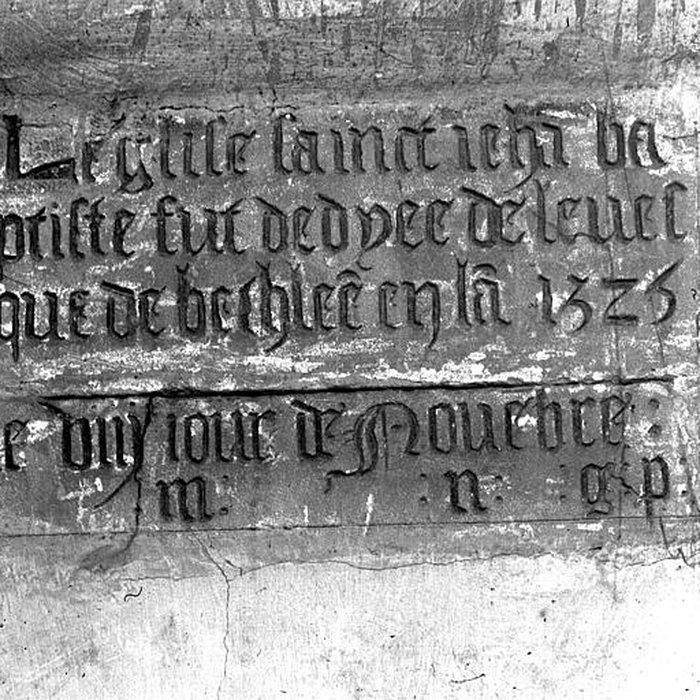 Leglise sainct iehā ba
ptiste fut dedyee de leues
que de bethleē en lā 1525
le viij iour de Nouebre :
m : : n : : g : p :